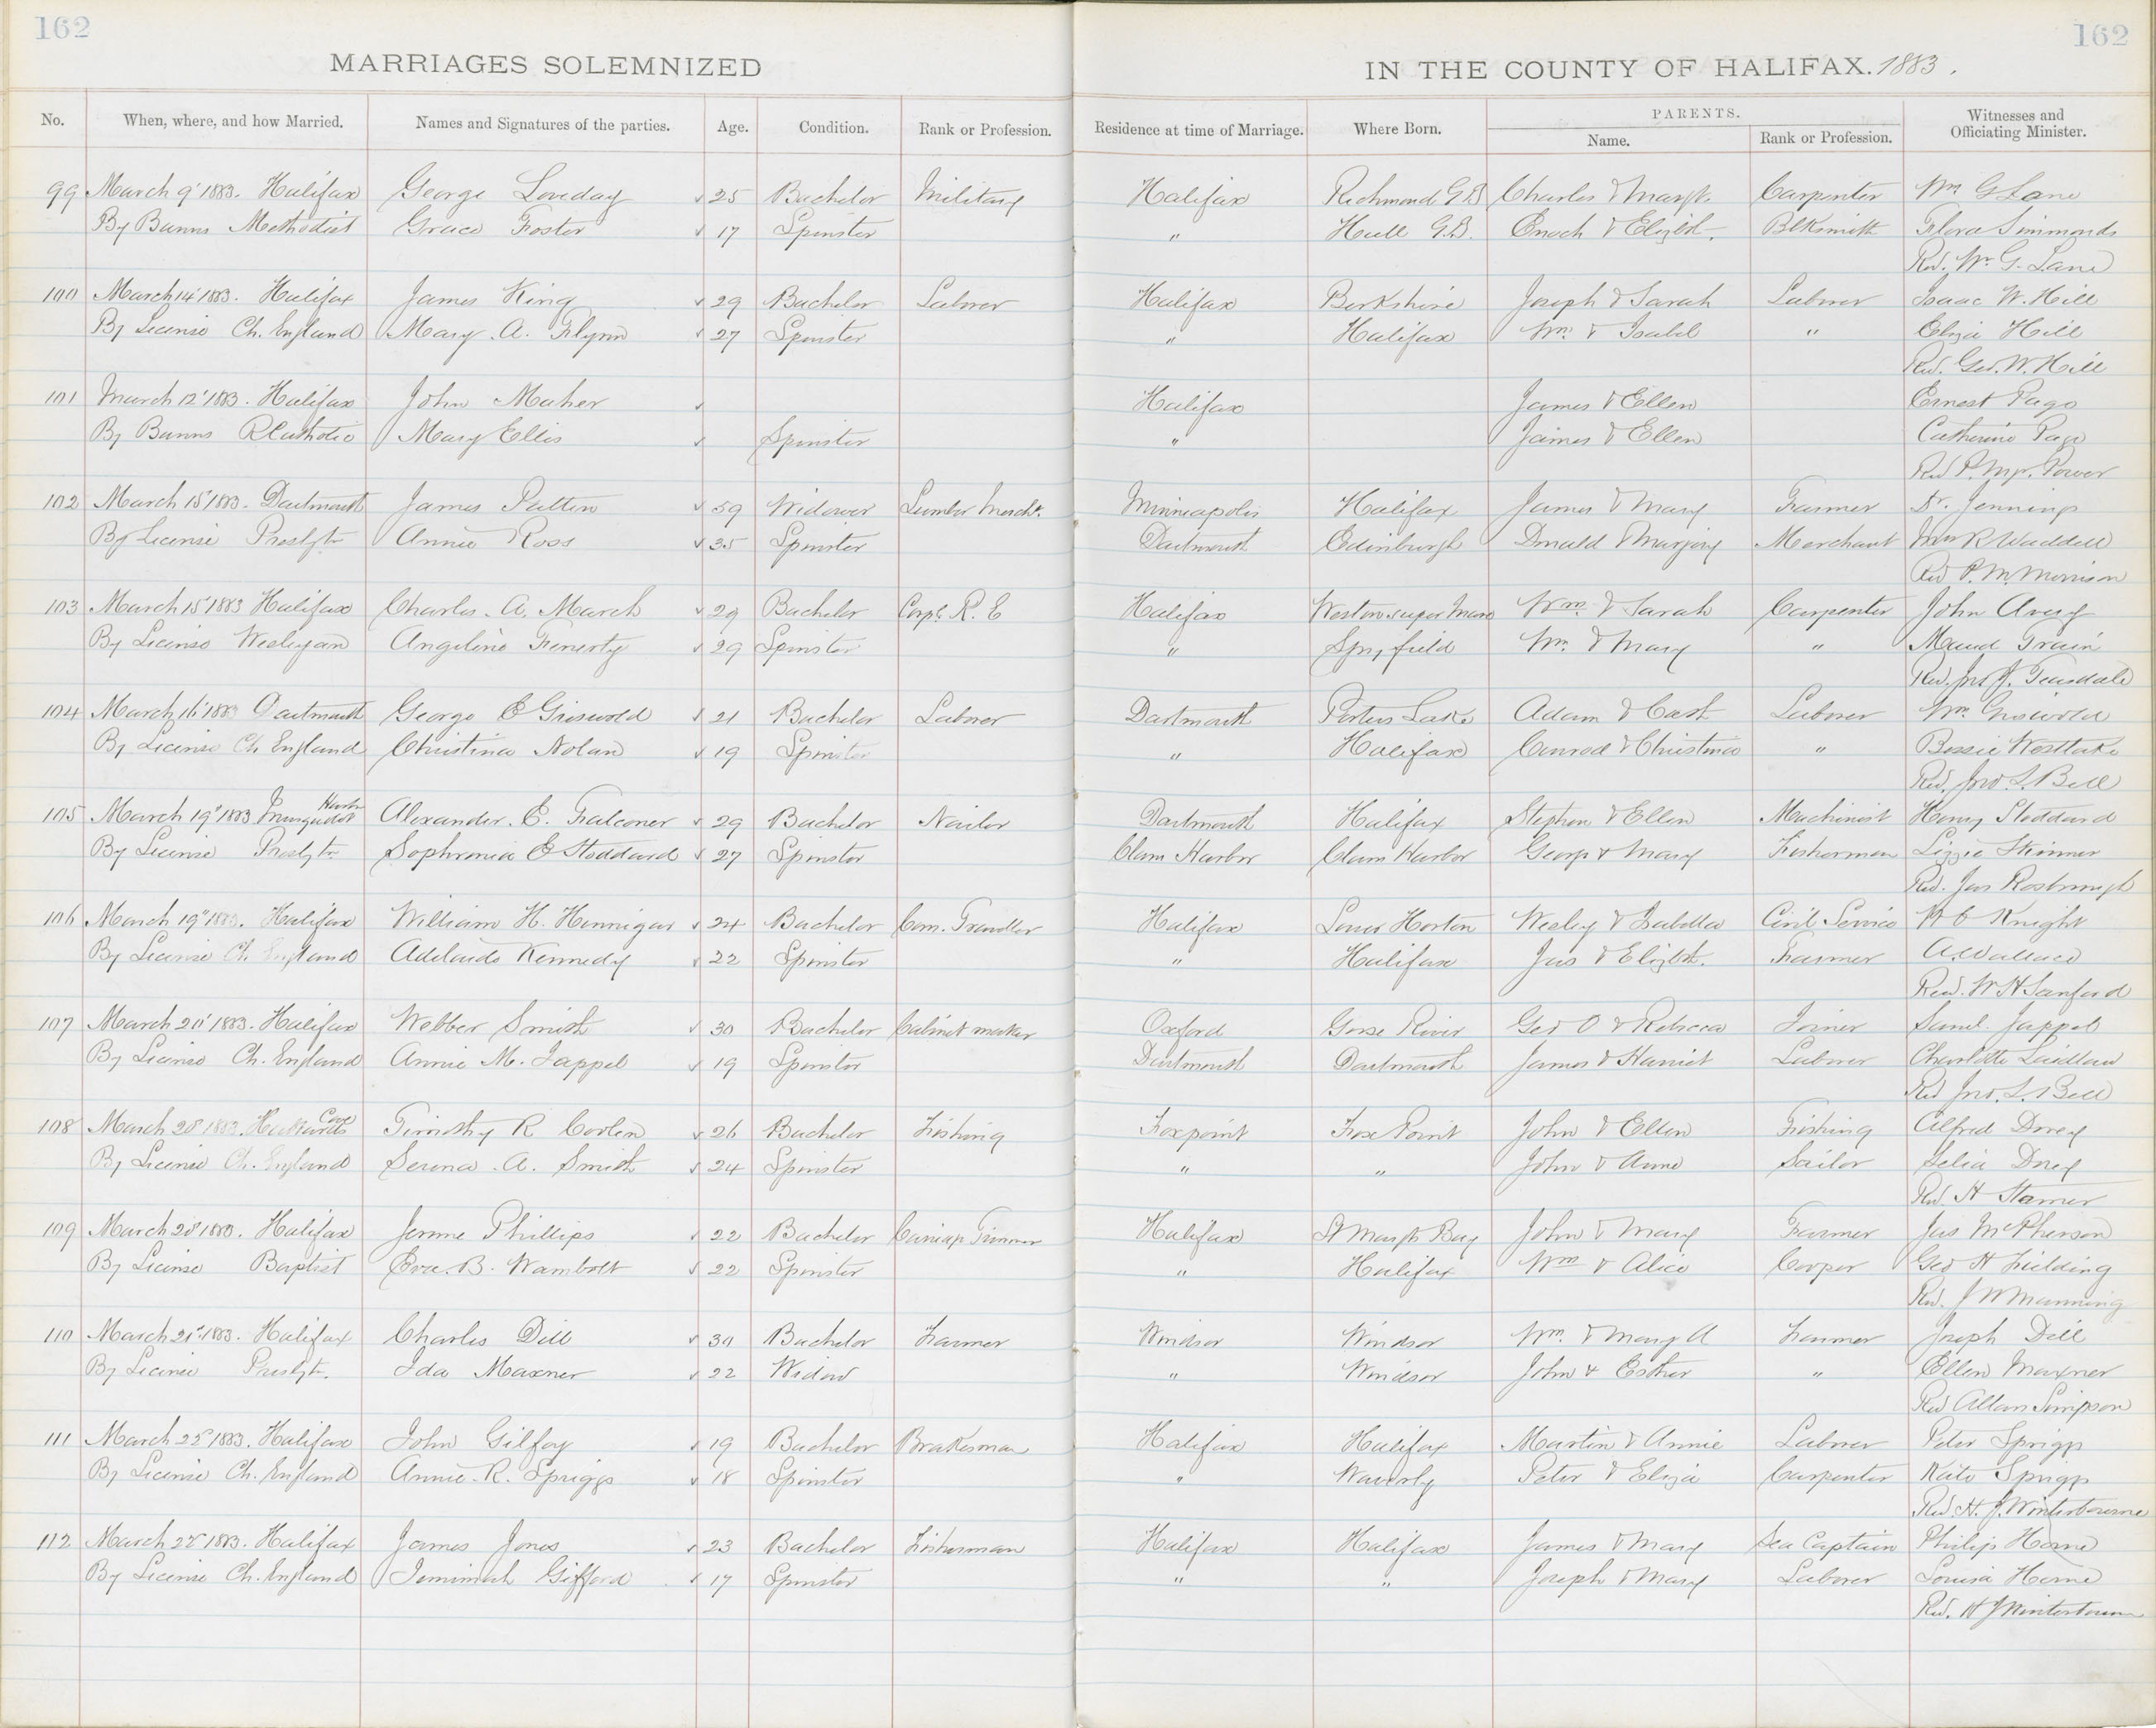 162
162
MARRIAGES SOLEMNIZED IN THE COUNTY OF HALIFAX. 1883.
No. When, where, and how Married. Names and Signatures of the parties. Age. Condition. Rank or Profession. Residence at time of Marriage. Where Born. PARENTS. Name. Rank or Profession. Witnesses and Officiating Minister.
99 March 9" 1883. Halifax George Loveday 25 Bachelor Military Halifax Richmond G.B Charles & Margt. Carpenter Wm G Lane
By Banns Methodist Grace Foster 17 Spinster " Hull G.B. Enoch & Elizbt. Blksmith Flora Simmonds
Rev. Wm G. Lane
100 March 14" 1883. Halifax James King 29 Bachelor Laborer Halifax Berkshire Joseph & Sarah Laborer Isaac W. Hill
By License Ch. England Mary A. Flynn 27 Spinster " Halifax Wm. & Isabel " Eliza Hill
Rev. Geo. W. Hill
101 March 12" 1883. Halifax John Maher Halifax James & Ellen Ernest Page
By Banns R Catholic Mary Ellis Spinster " James & Ellen Catherine Page
Rev P. Power
102 March 15" 1883. Dartmouth James Patten 59 Widower Lumber Mercht. Minneapolis Halifax James & Mary Farmer Dr. Jennings
By License Presbyt Annie Ross 35 Spinster Dartmouth Edinburgh Donald & Marjory Merchant R Waddell
Rev P. M. Morrison
103 March 15" 1883 Halifax Charles A. March 29 Bachelor Corpl. R. E Halifax Weston super Mare Wm. & Sarah Carpenter John Avery
By License Wesleyan Angeline Fenerty 29 Spinster " Spryfield Wm. & Mary " Maud Train
Rev. Jno J. Teasdale
104 March 16" 1883 Dartmouth George E Griswold 21 Bachelor Laborer Dartmouth Porters Lake Adam & Cath Laborer Wm. Griswold
By License Ch England Christina Nolan 19 Spinster " Halifax Conrod & Christina " Bessie Westlake
Rev. Jno. L. Bell
105 March 19" 1883 Musquodot Harbr Alexander E. Falconer 29 Bachelor Nailor Dartmouth Halifax Stephen & Ellen Machinist Henry Stoddard
By License Presbyt Sophronia E Stoddard 27 Spinster Clam Harbor Clam Harbor George & Mary Fisherman Lizzie Skinner
Rev. Jas Rosborough
106 March 19" 1883. Halifax William H. Hennigar 24 Bachelor Com. Traveller Halifax Lower Horton Wesley & Isabella Civil Service Knight
By License Ch. England Adelaide Kennedy 22 Spinster " Halifax Jas & Elizbt. Farmer A. Wallace
Rev. W H Sanford
107 March 20" 1883. Halifax Webber Smith 30 Bachelor Cabinet maker Oxford Goose River Geo O & Rebecca Joiner Saml. Jappel
By License Ch. England Annie M. Jappel 19 Spinster Dartmouth Dartmouth James & Harriet Laborer Charlotte Laidlaw
Rev Jno. L. Bell
108 March 20" 1883. Hubbards Cove Timothy R Coolen 26 Bachelor Fishing Foxpoint Fox Point John & Ellen Fishing Alfred Dorey
By License Ch. England Serena A. Smith 24 Spinster " " John & Anne Sailor Selia Dorey
Rev. H Stamer
109 March 20" 1883. Halifax Jerome Phillips 22 Bachelor Carriage Trimmer Halifax St Margts Bay John & Mary Farmer Jas McPherson
By License Baptist Eva B. Wambolt 22 Spinster " Halifax Wm & Alice Cooper Geo H Fielding
Rev. J W Manning
110 March 21st 1883. Halifax Charles Dill 30 Bachelor Farmer Windsor Windsor Wm. & Mary A Farmer Joseph Dill
By License Presbyt. Ida Maxner 22 Widow " Windsor John & Esther " Ellen Maxner
Rev Allan Simpson
111 March 22" 1883. Halifax John Gilfoy 19 Bachelor Brakesman Halifax Halifax Martin & Annie Laborer Peter Spriggs
By License Ch. England Annie R. Spriggs 18 Spinster " Waverly Peter & Eliza Carpenter Kate Spriggs
Rev. H. J. Winterbourne
112 March 22" 1883. Halifax James Jones 23 Bachelor Fisherman Halifax Halifax James & Mary Sea Captain Philip Horne
By License Ch. England Jemimah Gifford 17 Spinster " " Joseph & Mary Laborer Louisa Horne
Rev. H J Winterbourne